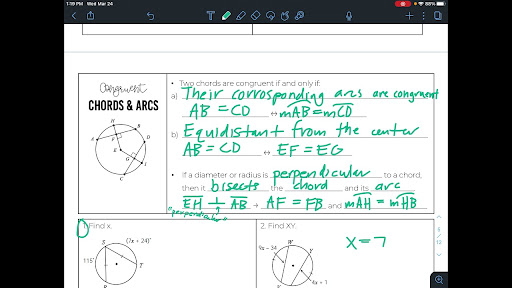 1:19 PM Wed Mar 24
86%
Congruent
CHORDS & ARCS
H
A
B
F
E
D
G
I
C
• Two chords are congruent if and only if:
a) Their corrosponding arcs are congruent
AB = CD ↔ mAB = mCD
b) Equidistant from the center
AB = CD ↔ EF = EG
• If a diameter or radius is perpendicular to a chord,
then it bisects the chord and its arc
EH ⊥ AB → AF = FB and mAH = mHB
"perpendicular"
1. Find x.
S
(7x + 24)°
115°
T
R
2. Find XY.
W
9x - 34
Y
4x + 1
x = 7